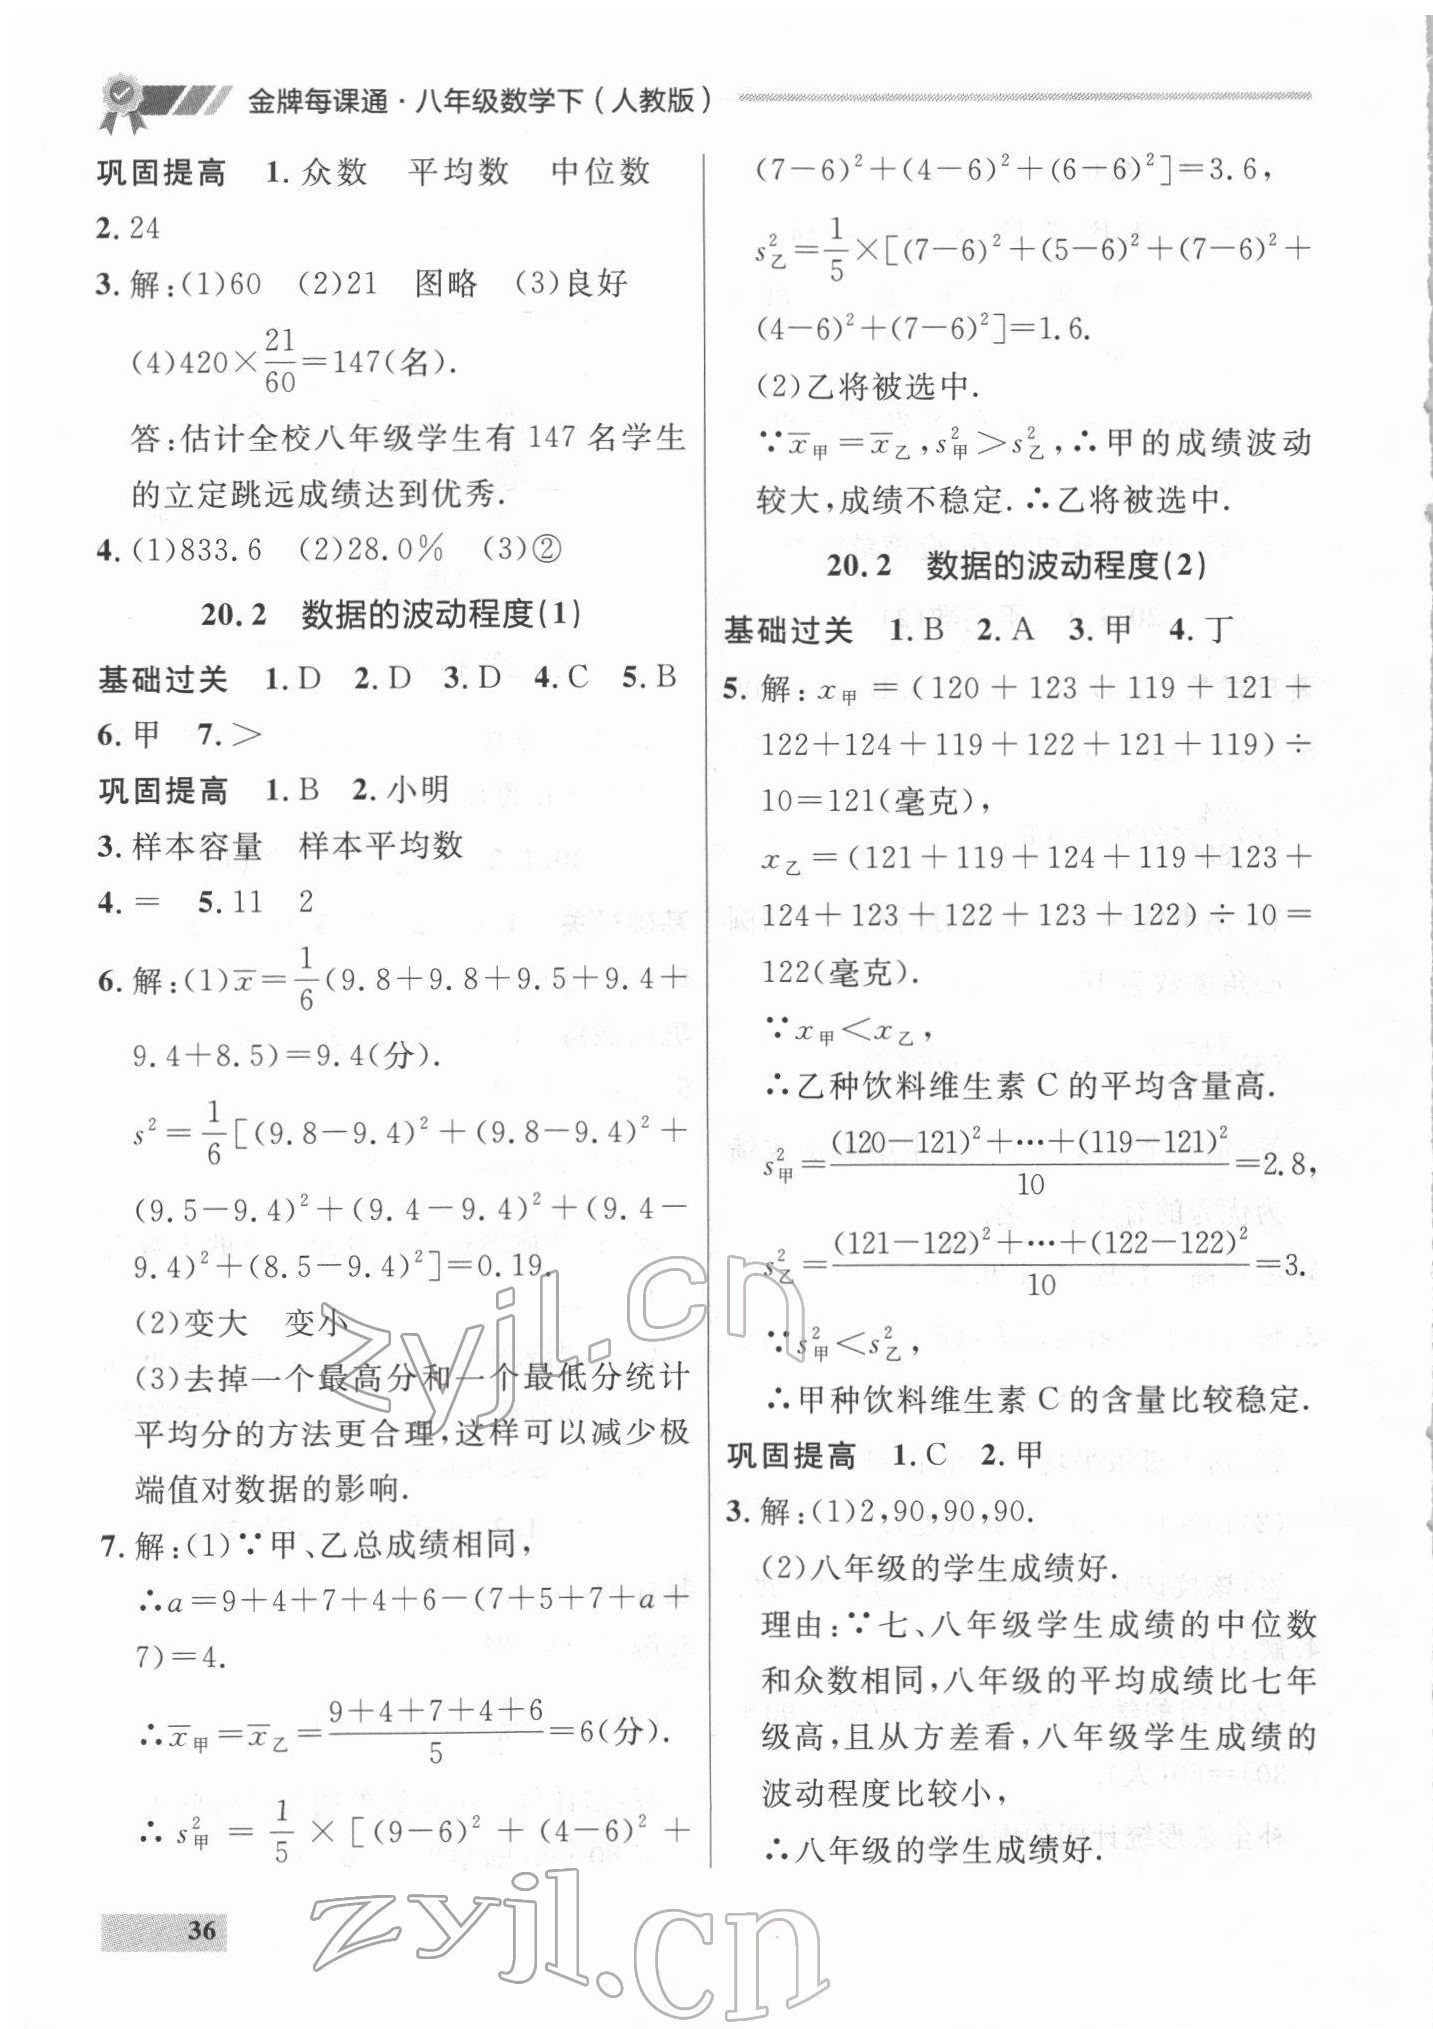 金牌每课通·八年级数学下(人教版)
巩固提高 1.众数 平均数 中位数
2.24
3.解:(1)60 (2)21 图略 (3)良好
(4)420×21/60=147(名).
答:估计全校八年级学生有 147 名学生
的立定跳远成绩达到优秀.
4.(1)833.6 (2)28.0% (3)②
20.2 数据的波动程度(1)
基础过关 1.D 2.D 3.D 4.C 5.B
6.甲 7.>
巩固提高 1.B 2.小明
3.样本容量 样本平均数
4.= 5.11 2
6.解:(1)x̅=1/6(9.8+9.8+9.5+9.4+
9.4+8.5)=9.4(分).
s²=1/6[(9.8-9.4)²+(9.8-9.4)²+
(9.5-9.4)²+(9.4-9.4)²+(9.4-
9.4)²+(8.5-9.4)²]=0.19.
(2)变大 变小
(3)去掉一个最高分和一个最低分统计
平均分的方法更合理,这样可以减少极
端值对数据的影响.
7.解:(1)∵甲、乙总成绩相同,
∴a=9+4+7+4+6-(7+5+7+a+
7)=4.
∴x̅甲=x̅乙=(9+4+7+4+6)/5=6(分).
∴s²甲=1/5×[(9-6)²+(4-6)²+
36
(7-6)²+(4-6)²+(6-6)²]=3.6,
s²乙=1/5×[(7-6)²+(5-6)²+(7-6)²+
(4-6)²+(7-6)²]=1.6.
(2)乙将被选中.
∵x̅甲=x̅乙,s²甲>s²乙,∴甲的成绩波动
较大,成绩不稳定.∴乙将被选中.
20.2 数据的波动程度(2)
基础过关 1.B 2.A 3.甲 4.丁
5.解:x甲=(120+123+119+121+
122+124+119+122+121+119)÷
10=121(毫克),
x乙=(121+119+124+119+123+
124+123+122+123+122)÷10=
122(毫克).
∵x甲<x乙,
∴乙种饮料维生素 C 的平均含量高.
s²甲=((120-121)²+…+(119-121)²)/10=2.8,
s²乙=((121-122)²+…+(122-122)²)/10=3.
∵s²甲<s²乙,
∴甲种饮料维生素 C 的含量比较稳定.
巩固提高 1.C 2.甲
3.解:(1)2,90,90,90.
(2)八年级的学生成绩好.
理由:∵七、八年级学生成绩的中位数
和众数相同,八年级的平均成绩比七年
级高,且从方差看,八年级学生成绩的
波动程度比较小,
∴八年级的学生成绩好.
zyjl.cn
zyjl.cn